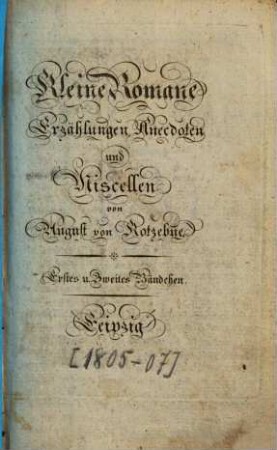 Kleine Romane
Erzählungen Anecdoten
und
Miscellen
von
August von Kotzebue.
Erstes u. Zweites Bändchen.
Leipzig
[1805-07]